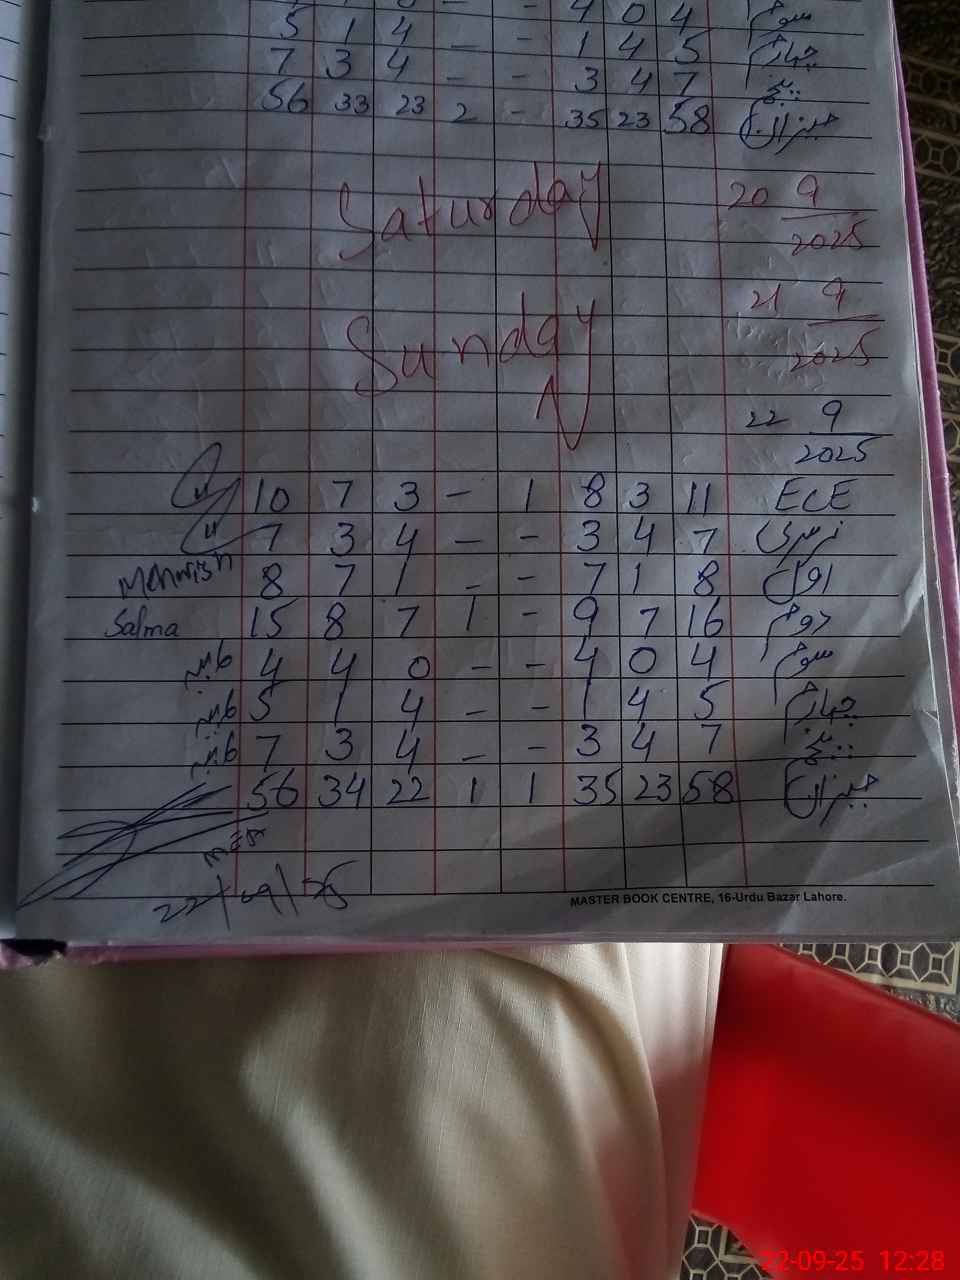 4 0 4 سوم
5 1 4 – – 1 4 5 چہارم
7 3 4 – – 3 4 7 پنجم
56 33 23 2 – 35 23 58 میزان
Saturday 20 9 2025
Sunday 21 9 2025
22 9 2025
〃 10 7 3 – 1 8 3 11 ECE
〃 7 3 4 – – 3 4 7 نرسری
Mehwish 8 7 1 – – 7 1 8 اول
Salma 15 8 7 1 – 9 7 16 دوم
طیبہ 4 4 0 – – 4 0 4 سوم
طیبہ 5 1 4 – – 1 4 5 چہارم
طیبہ 7 3 4 – – 3 4 7 پنجم
56 34 22 1 1 35 23 58 میزان
MEA
22/09/25
MASTER BOOK CENTRE, 16-Urdu Bazar Lahore.
22-09-25 12:28